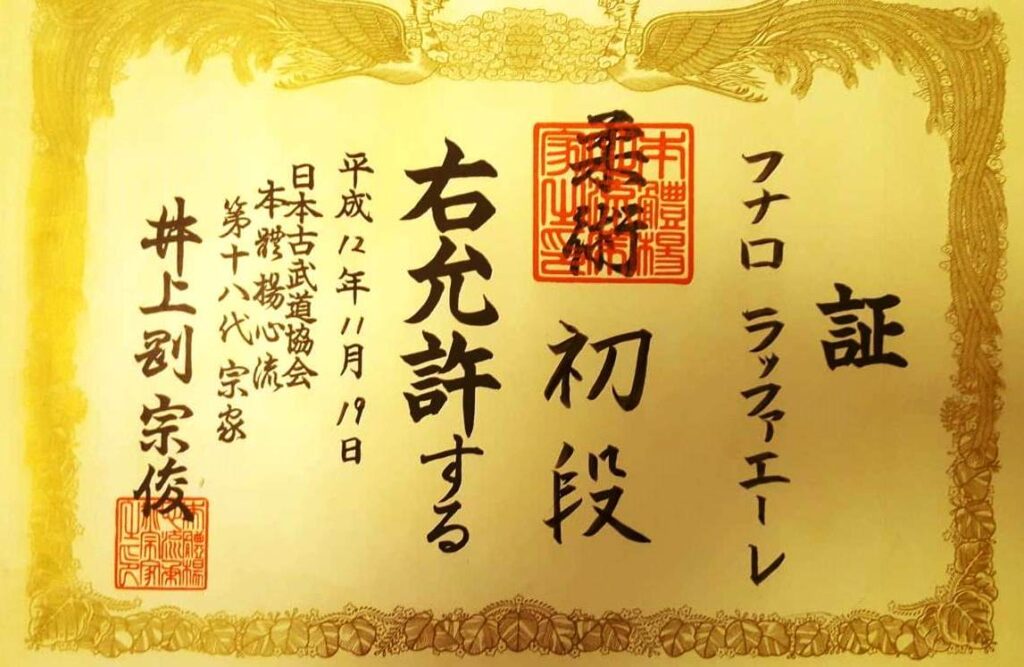 証
フナロ ラッファエーレ
柔術 初段
右允許する
平成12年11月19日
日本古武道協会
本體楊心流
第十八代 宗家
井上剛 宗俊